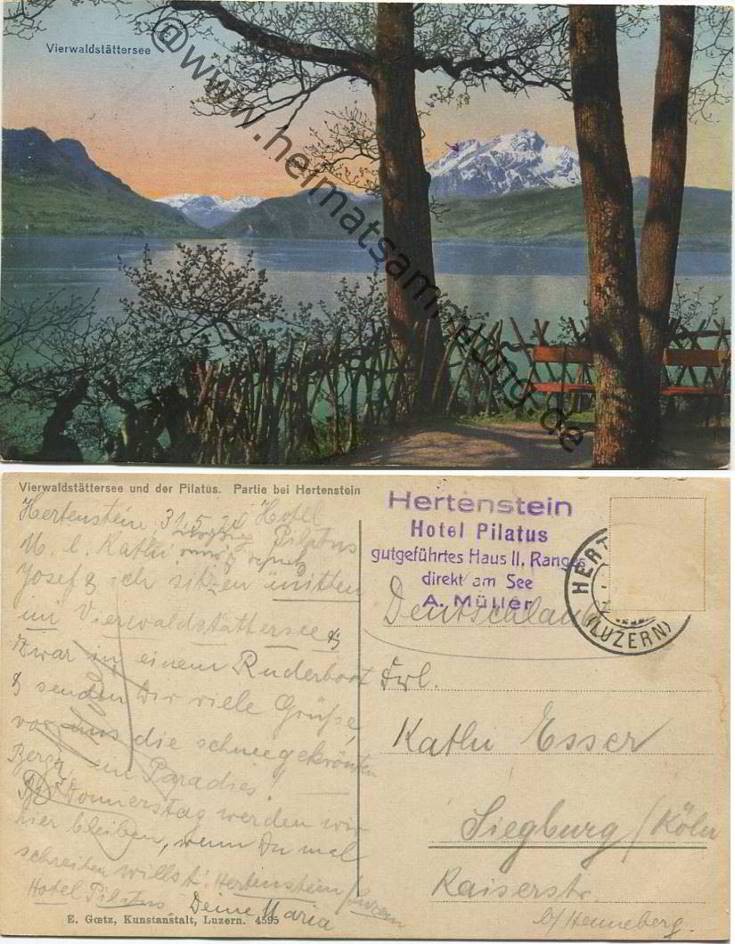 Vierwaldstättersee
@www.heimatsammlung.de
Vierwaldstättersee und der Pilatus. Partie bei Hertenstein
Hertenstein, 31.5.20 Hotel
Pilatus
M. l. Kathi
Josef & ich sitzen mitten
im Vierwaldstättersee &
zwar in einem Ruderboot
& senden Dir viele Grüße,
vor uns die schneegekrönten
Berge, ein Paradies!
Donnerstag werden wir
hier bleiben, wenn Du mal
schreiben willst. Hertenstein / Luzern
Hotel Pilatus Deine Maria
E. Gœtz, Kunstanstalt, Luzern. 4595
Hertenstein
Hotel Pilatus
gutgeführtes Haus II. Ranges
direkt am See
A. Müller
HERT
(LUZERN)
Deutschland
Frl.
Kathi Esser
Siegburg / Köln
Kaiserstr.
b/ Henneberg.